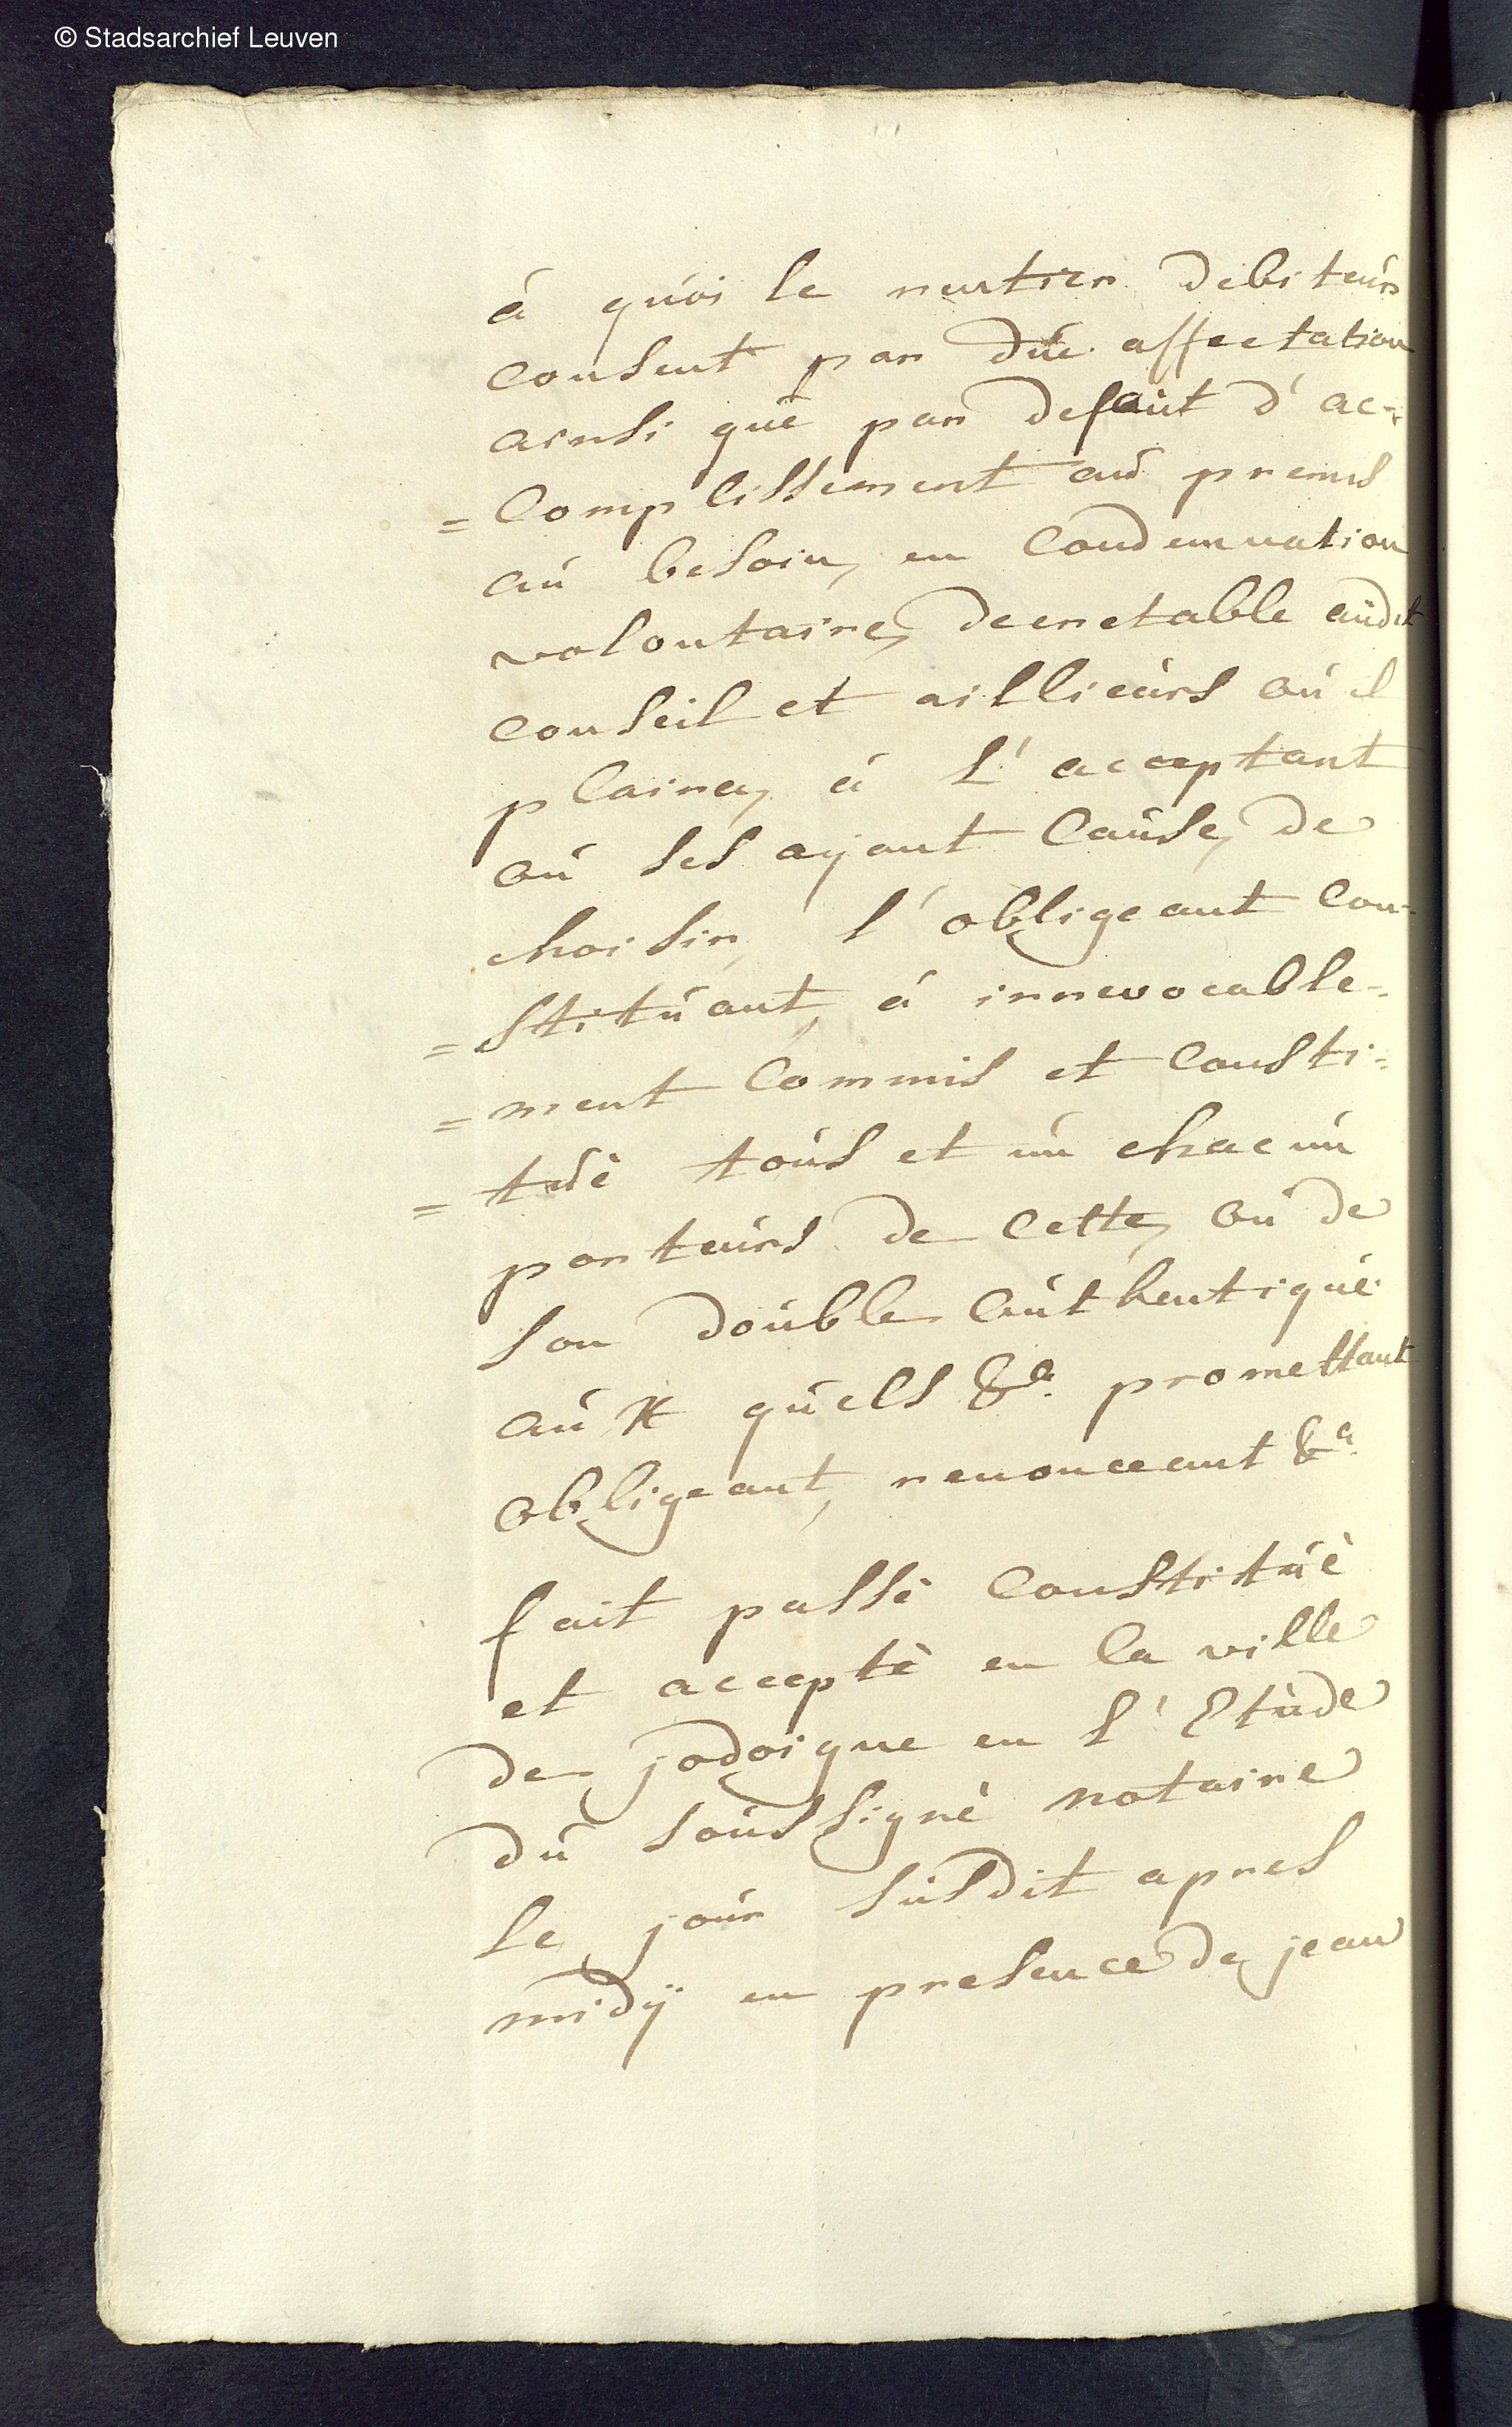 © Stadsarchief Leuven
à quoi le rentier debiteur
consent par düe affectation
ainsi que par defaut d'ac=
=complissement aud premis
au besoin, en condemnation
volontaire, decretable audit
conseil et aillieurs ou il
plaira, à l'acceptant
ou ses ayant cause, de
choisir, l'obligeant con-
=stituant, à irrevocable=
=ment commis et consti=
=tué tous et un chacun
porteurs de cette, ou de
son double authentique
aux quels &a. promettant
obligeant, renonceant &a.
fait passé constitué
et accepté en la ville
de jodoigne en l'Etude
du soussigné notaire
le jour susdit apres
midÿ en presence de jean